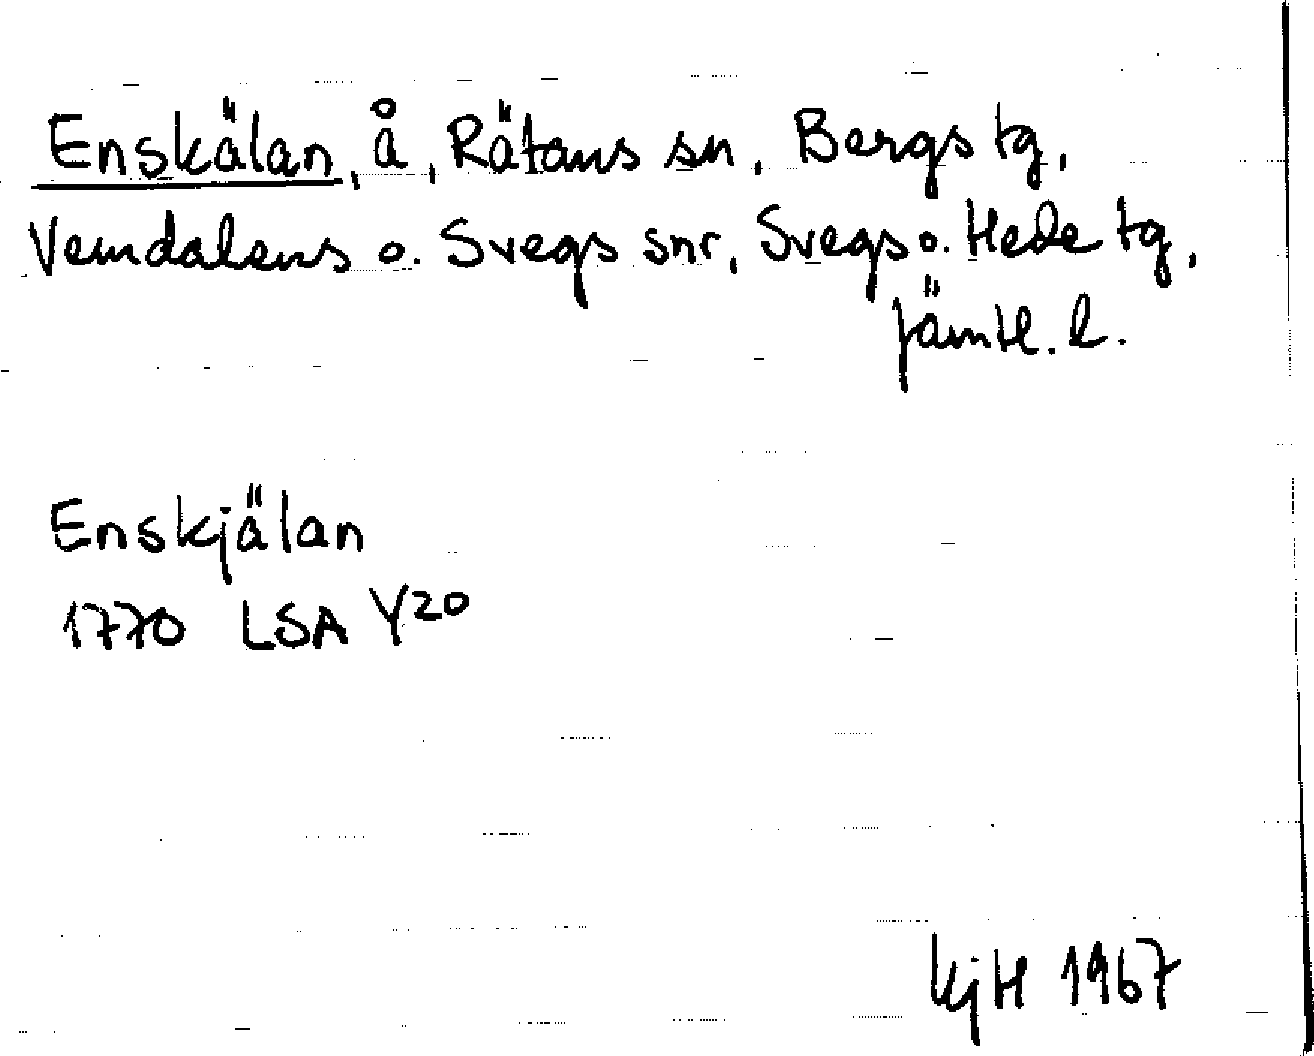 Enskälan, å, Rätans sn, Bergs tg,
Vemdalens o. Svegs snr, Svegs o. Hede tg,
Jämtl. l.
Enskjälan
1770 LSA Y20
KjH 1967